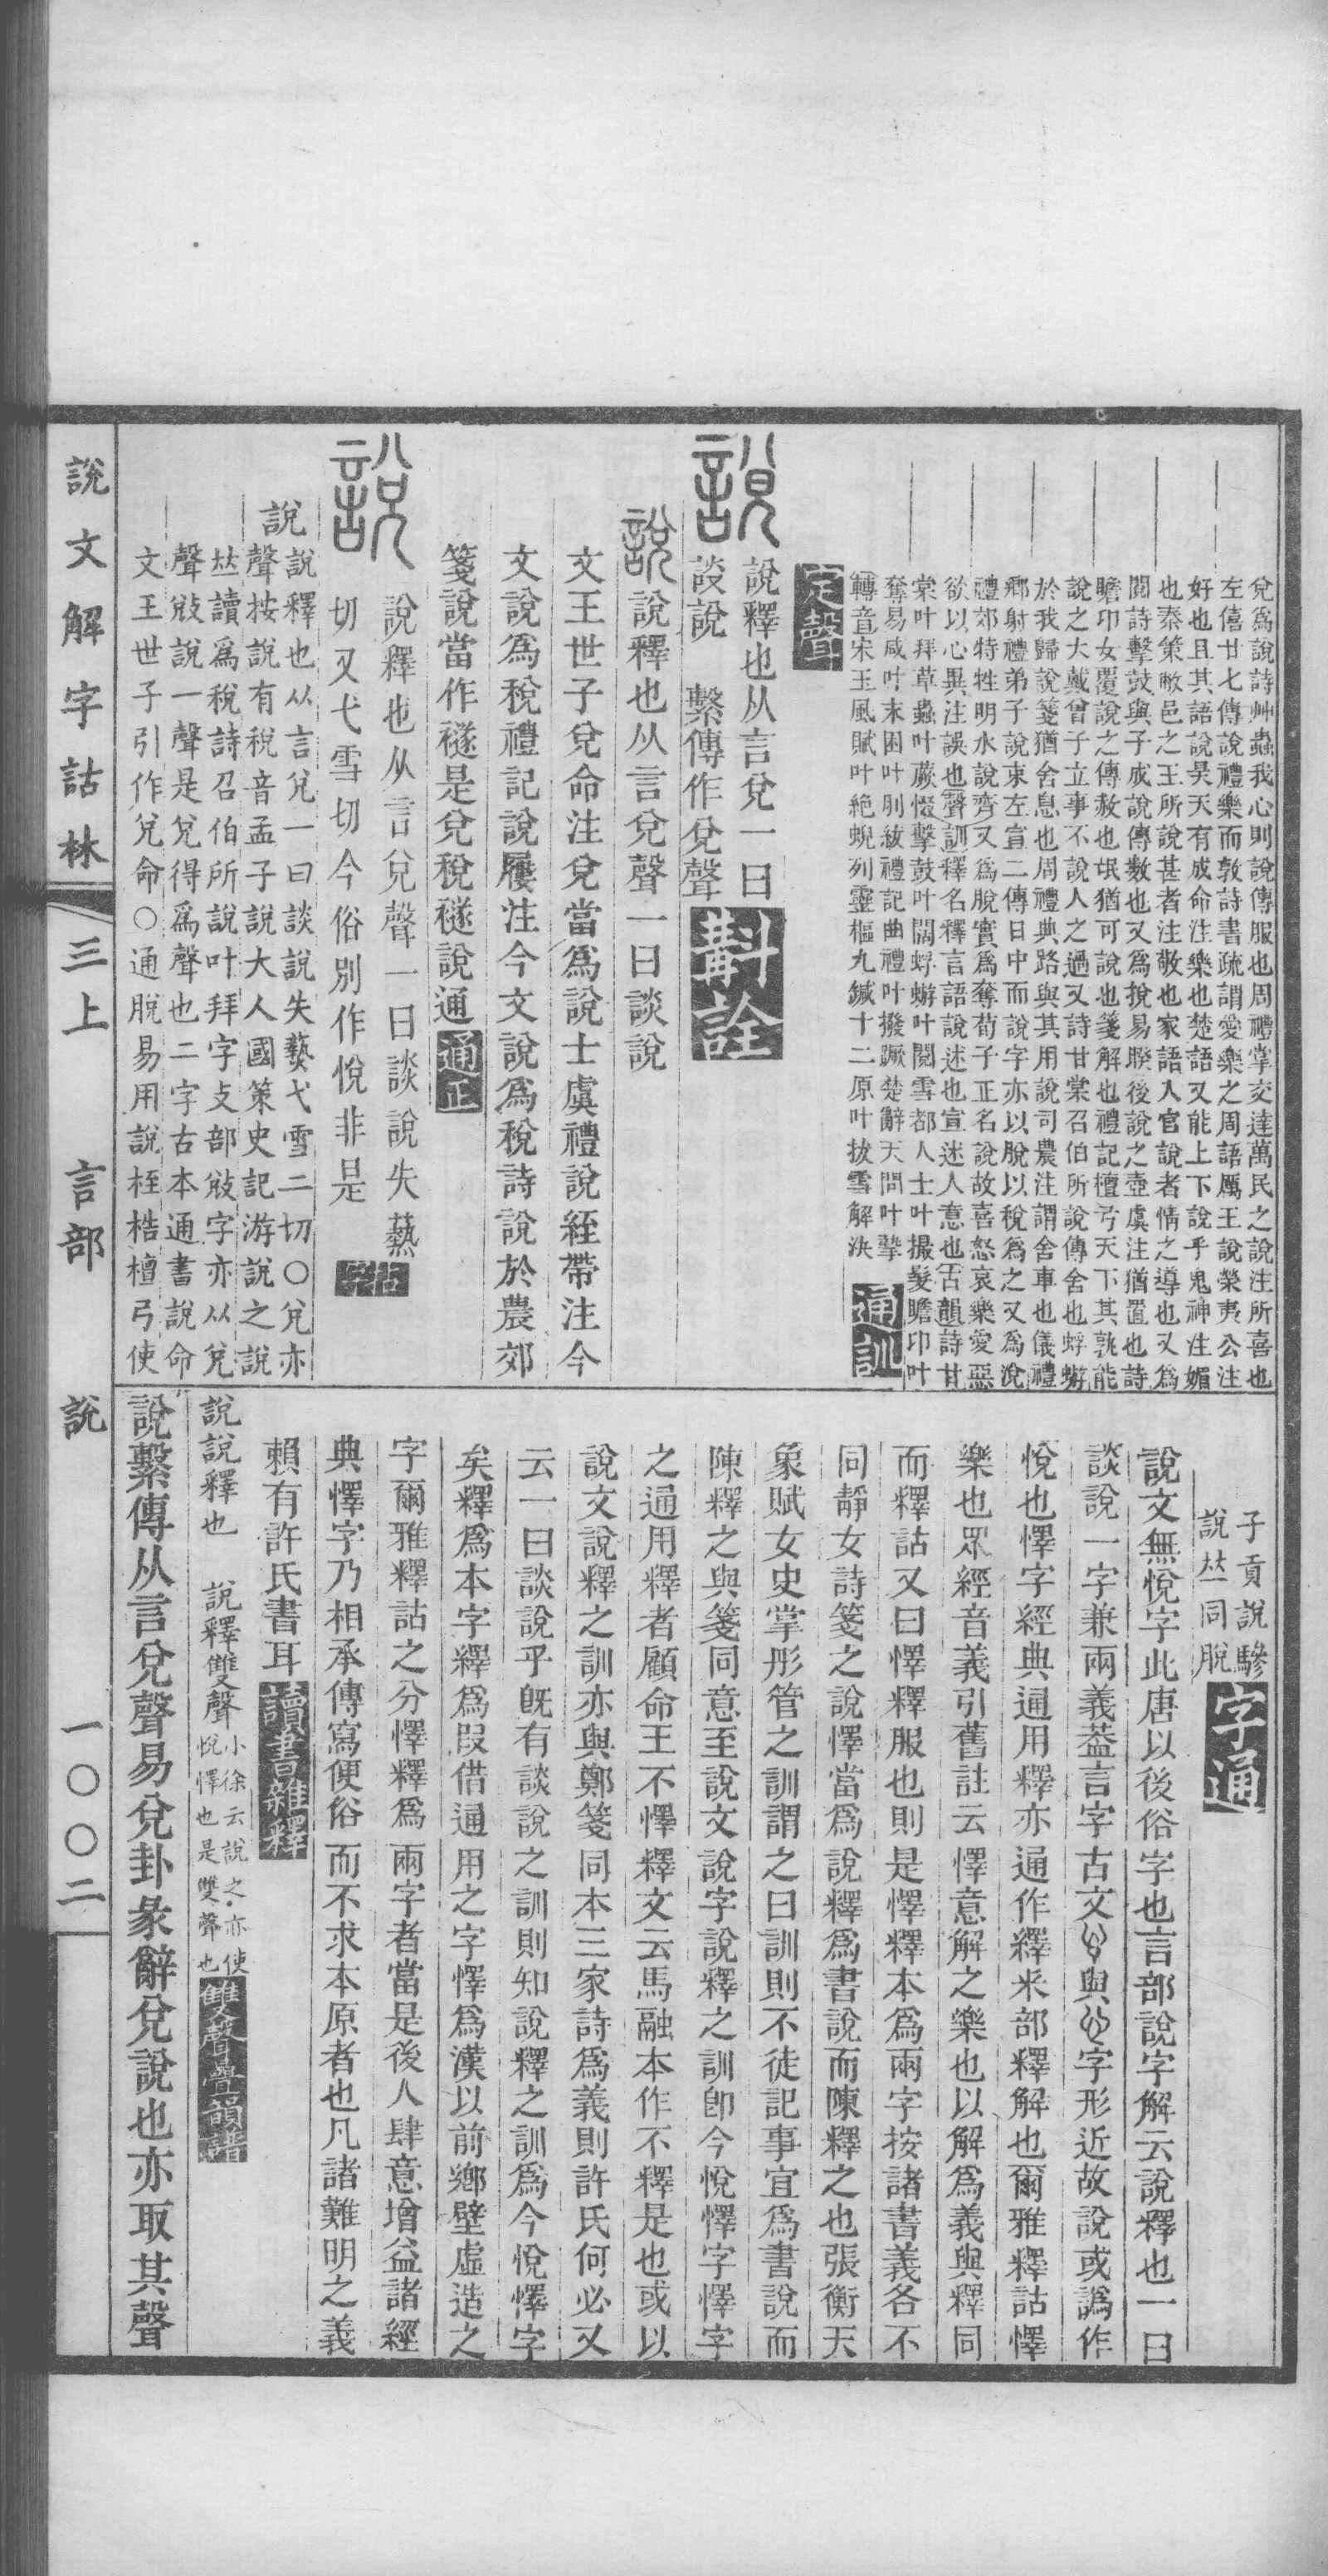 兌爲說詩艸蟲我心則說傳服也周禮掌交達萬民之說注所喜也
左僖廿七傳說禮樂而敦詩書疏謂愛樂之周語厲王說榮夷公注
好也且其語說昊天有成命注樂也楚語又能上下說乎鬼神注媚
也秦策敝邑之王所說甚者注敬也家語入官說者情之導也又爲
閱詩擊鼓與子成說傳數也又爲捝易睽後說之壺虞注猶置也詩
瞻卬女覆說之傳赦也氓猶可說也箋解也禮記檀弓天下其孰能
說之大戴曾子立事不說人之過又詩甘棠召伯所說傳舍也蜉蝣
於我歸說箋猶舍息也周禮典路與其用說司農注謂舍車也儀禮
鄉射禮弟子說束左宣二傳日中而說字亦以脫以稅爲之又爲涗
禮郊特牲明水說齊又爲脫實爲奪荀子正名說故喜怒哀樂愛惡
欲以心異注誤也聲訓釋名釋言語說述也宣述人意也古韻詩甘
棠叶拜草蟲叶蕨惙擊鼓叶闊蜉蝣叶閱雪都人士叶撮髮瞻卬叶
奪易咸叶末困叶刖紱禮記曲禮叶撥蹶楚辭天問叶摯
轉音宋玉風賦叶絕蜺列靈樞九鍼十二原叶拔雪解決
通訓
定聲
說
說釋也从言兌一曰
談說　繫傳作兌聲
斠詮
說說釋也从言兌聲一曰談說
文王世子兌命注兌當爲說士虞禮說絰帶注今
文說爲稅禮記說屨注今文說爲稅詩說於農郊
箋說當作襚是兌稅襚說通通正
說
說釋也从言兌聲一曰談說失爇
切又弋雪切今俗別作悅非是
古字
說
說釋也从言兌一曰談說失爇弋雪二切○兌亦
聲按說有稅音孟子說大人國策史記游說之說
𠀤讀爲稅詩召伯所說叶拜字攴部敚字亦从兌
聲敚說一聲是兌得爲聲也二字古本通書說命
文王世子引作兌命○通脫易用說桎梏檀弓使
子貢說驂
說𠀤同脫
字通
說文無悅字此唐以後俗字也言部說字解云說釋也一曰
談說一字兼兩義葢言字古文與字形近故說或譌作
悅也懌字經典通用釋亦通作繹釆部釋解也爾雅釋詁懌
樂也眾經音義引舊註云懌意解之樂也以解爲義與釋同
而釋詁又曰懌釋服也則是懌釋本爲兩字按諸書義各不
同靜女詩箋之說懌當爲說釋爲書說而陳釋之也張衡天
象賦女史掌彤管之訓謂之曰訓則不徒記事宜爲書說而
陳釋之與箋同意至說文說字說釋之訓卽今悅懌字懌字
之通用釋者顧命王不懌釋文云馬融本作不釋是也或以
說文說釋之訓亦與鄭箋同本三家詩爲義則許氏何必又
云一曰談說乎旣有談說之訓則知說釋之訓爲今悅懌字
矣釋爲本字繹爲叚借通用之字懌爲漢以前鄉壁虛造之
字爾雅釋詁之分懌釋爲兩字者當是後人肆意增益諸經
典懌字乃相承傳寫便俗而不求本原者也凡諸難明之義
賴有許氏書耳讀書雜釋
說說釋也　說釋雙聲小徐云說之亦使悅懌也是雙聲也雙聲疊韻譜
說繫傳从言兌聲易兌卦彖辭兌說也亦取其聲
說文解字詁林　三上　言部　說　一〇〇二